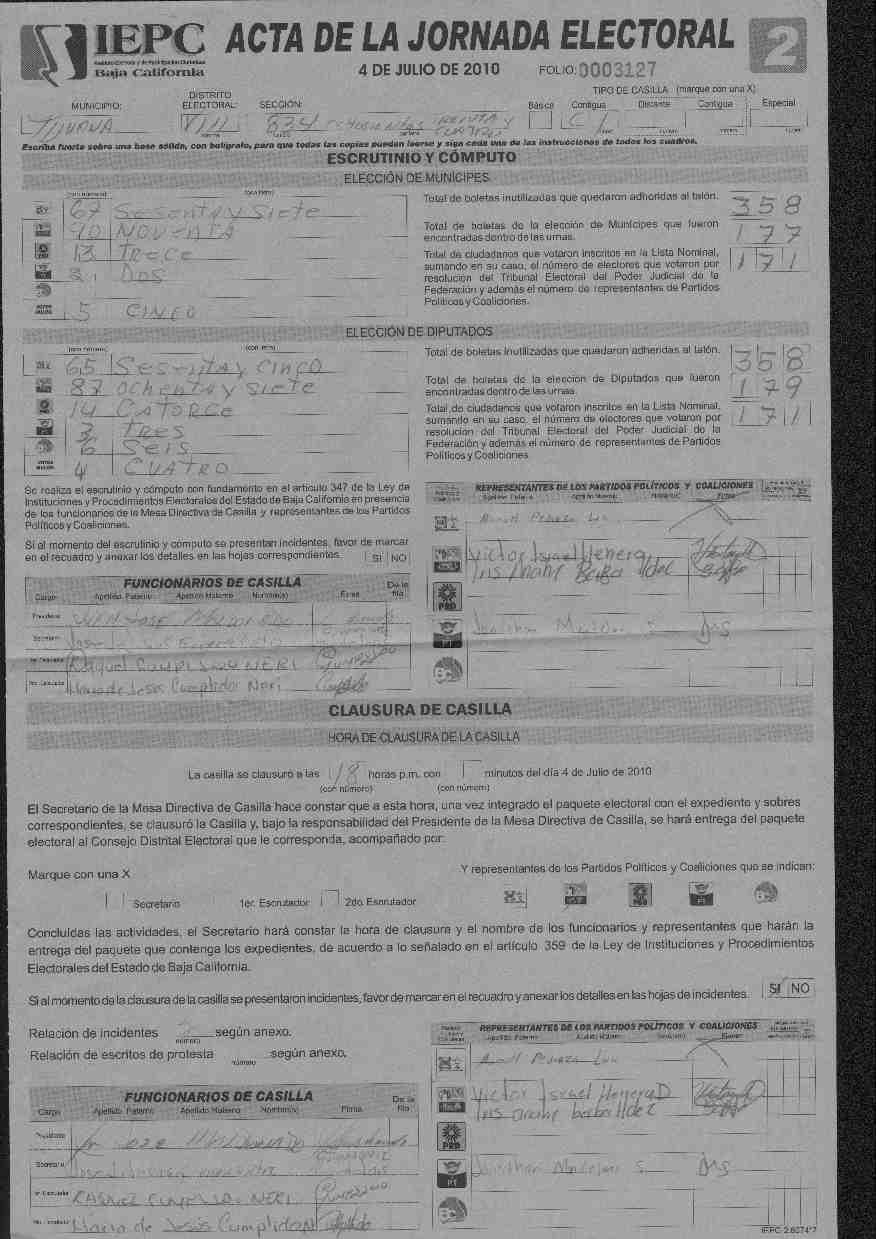 IEPC
Baja California
ACTA DE LA JORNADA ELECTORAL
2
4 DE JULIO DE 2010 FOLIO: 0003127
TIPO DE CASILLA (marque con una X)
MUNICIPIO: DISTRITO ELECTORAL: SECCIÓN: Básica Contigua Discante Contigua Especial
VIII 834
Escriba fuerte sobre una base sólida, con bolígrafo, para que todas las copias puedan leerse y siga cada una de las instrucciones de todos los cuadros.
ESCRUTINIO Y CÓMPUTO
ELECCIÓN DE MUNÍCIPES
(con número) (con letra)
67 Sesenta y Siete
90 NOVENTA
13 Trece
2 Dos
5 CINCO
Total de boletas inutilizadas que quedaron adheridas al talón. 358
Total de boletas de la elección de Munícipes que fueron
encontradas dentro de las urnas. 177
Total de ciudadanos que votaron inscritos en la Lista Nominal, 171
sumando en su caso, el número de electores que votaron por
resolución del Tribunal Electoral del Poder Judicial de la
Federación y además el número de representantes de Partidos
Políticos y Coaliciones.
ELECCIÓN DE DIPUTADOS
(con número) (con letra)
65 Sesenta y Cinco
87 ochenta y siete
14 CATORCE
3 tres
6 Seis
4 CUATRO
Total de boletas inutilizadas que quedaron adheridas al talón. 358
Total de boletas de la elección de Diputados que fueron
encontradas dentro de las urnas. 179
Total de ciudadanos que votaron inscritos en la Lista Nominal, 171
sumando en su caso, el número de electores que votaron por
resolución del Tribunal Electoral del Poder Judicial de la
Federación y además el número de representantes de Partidos
Políticos y Coaliciones.
Se realiza el escrutinio y cómputo con fundamento en el artículo 347 de la Ley de
Instituciones y Procedimientos Electorales del Estado de Baja California en presencia
de los funcionarios de la Mesa Directiva de Casilla y representantes de los Partidos
Políticos y Coaliciones.
Si al momento del escrutinio y cómputo se presentan incidentes, favor de marcar
en el recuadro y anexar los detalles en las hojas correspondientes. SI NO
REPRESENTANTES DE LOS PARTIDOS POLÍTICOS Y COALICIONES
Apellido Paterno Apellido Materno Nombre(s) Firma
Victor Israel Herrera
PRD
PT
FUNCIONARIOS DE CASILLA
Cargo Apellido Paterno Apellido Materno Nombre(s) Firma De la fila
Presidente
Secretario
1er. Escrutador Raquel CUMPLIDO NERI
2do. Escrutador Maria de Jesús Cumplido Neri
CLAUSURA DE CASILLA
HORA DE CLAUSURA DE LA CASILLA
La casilla se clausuró a las 18 horas p.m. con minutos del día 4 de Julio de 2010
(con número) (con número)
El Secretario de la Mesa Directiva de Casilla hace constar que a esta hora, una vez integrado el paquete electoral con el expediente y sobres
correspondientes, se clausuró la Casilla y, bajo la responsabilidad del Presidente de la Mesa Directiva de Casilla, se hará entrega del paquete
electoral al Consejo Distrital Electoral que le corresponda, acompañado por:
Marque con una X
Y representantes de los Partidos Políticos y Coaliciones que se indican:
Secretario 1er. Escrutador 2do. Escrutador
Concluidas las actividades, el Secretario hará constar la hora de clausura y el nombre de los funcionarios y representantes que harán la
entrega del paquete que contenga los expedientes, de acuerdo a lo señalado en el artículo 359 de la Ley de Instituciones y Procedimientos
Electorales del Estado de Baja California.
Si al momento de la clausura de la casilla se presentaron incidentes, favor de marcar en el recuadro y anexar los detalles en las hojas de incidentes. SI NO
Relación de incidentes según anexo.
número
Relación de escritos de protesta según anexo.
número
REPRESENTANTES DE LOS PARTIDOS POLÍTICOS Y COALICIONES
Apellido Paterno Apellido Materno Nombre(s) Firma
Victor Israel Herrera D
PRD
PT
FUNCIONARIOS DE CASILLA
Cargo Apellido Paterno Apellido Materno Nombre(s) Firma De la fila
Presidente
Secretario
1er. Escrutador RAQUEL CUMPLIDO NERI
2do. Escrutador Maria de Jesús Cumplido N